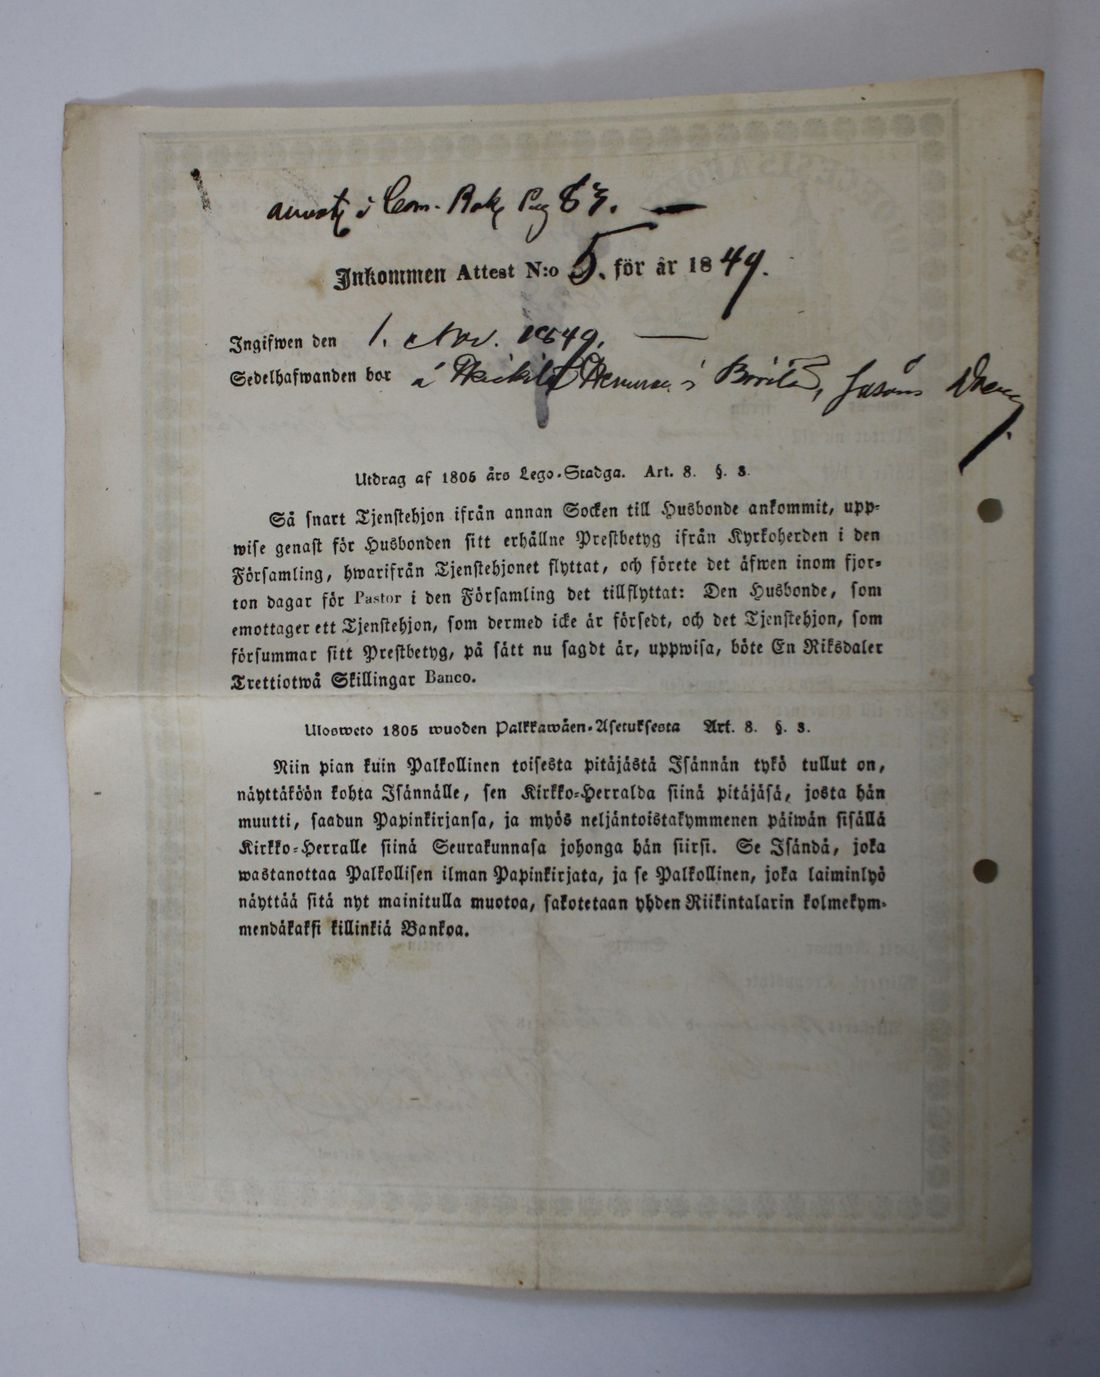 i Com. Bok Pag 87.
Inkommen Attest N:o 5. för år 1849.
Ingifwen den 1. Nov. 1849.
Sedelhafwanden bor å i
Utdrag af 1805 års Lego-Stadga. Art. 8. §. 3.
Så snart Tjenstehjon ifrån annan Socken till Husbonde ankommit, upp-
wise genast för Husbonden sitt erhållne Prestbetyg ifrån Kyrkoherden i den
Församling, hwarifrån Tjenstehjonet flyttat, och förete det äfwen inom fjor-
ton dagar för Pastor i den Församling det tillflyttat: Den Husbonde, som
emottager ett Tjenstehjon, som dermed icke är försedt, och det Tjenstehjon, som
försummar sitt Prestbetyg, på sätt nu sagdt är, uppwisa, böte En Riksdaler
Trettiotwå Skillingar Banco.
Ulosweto 1805 wuoden Palkkawäen-Asetuksesta Art. 8. §. 3.
Niin pian kuin Palkollinen toisesta pitäjästä Isännän tykö tullut on,
näyttäköön kohta Isännälle, sen Kirkko-Herralda siinä pitäjäsä, josta hän
muutti, saadun Papinkirjansa, ja myös neljäntoistakymmenen päiwän sisällä
Kirkko-Herralle siinä Seurakunnasa johonga hän siirsi. Se Isändä, joka
wastanottaa Palkollisen ilman Papinkirjata, ja se Palkollinen, joka laiminlyö
näyttää sitä nyt mainitulla muotoa, sakotetaan yhden Riikintalarin kolmekym-
mendäkaksi killinkiä Bankoa.